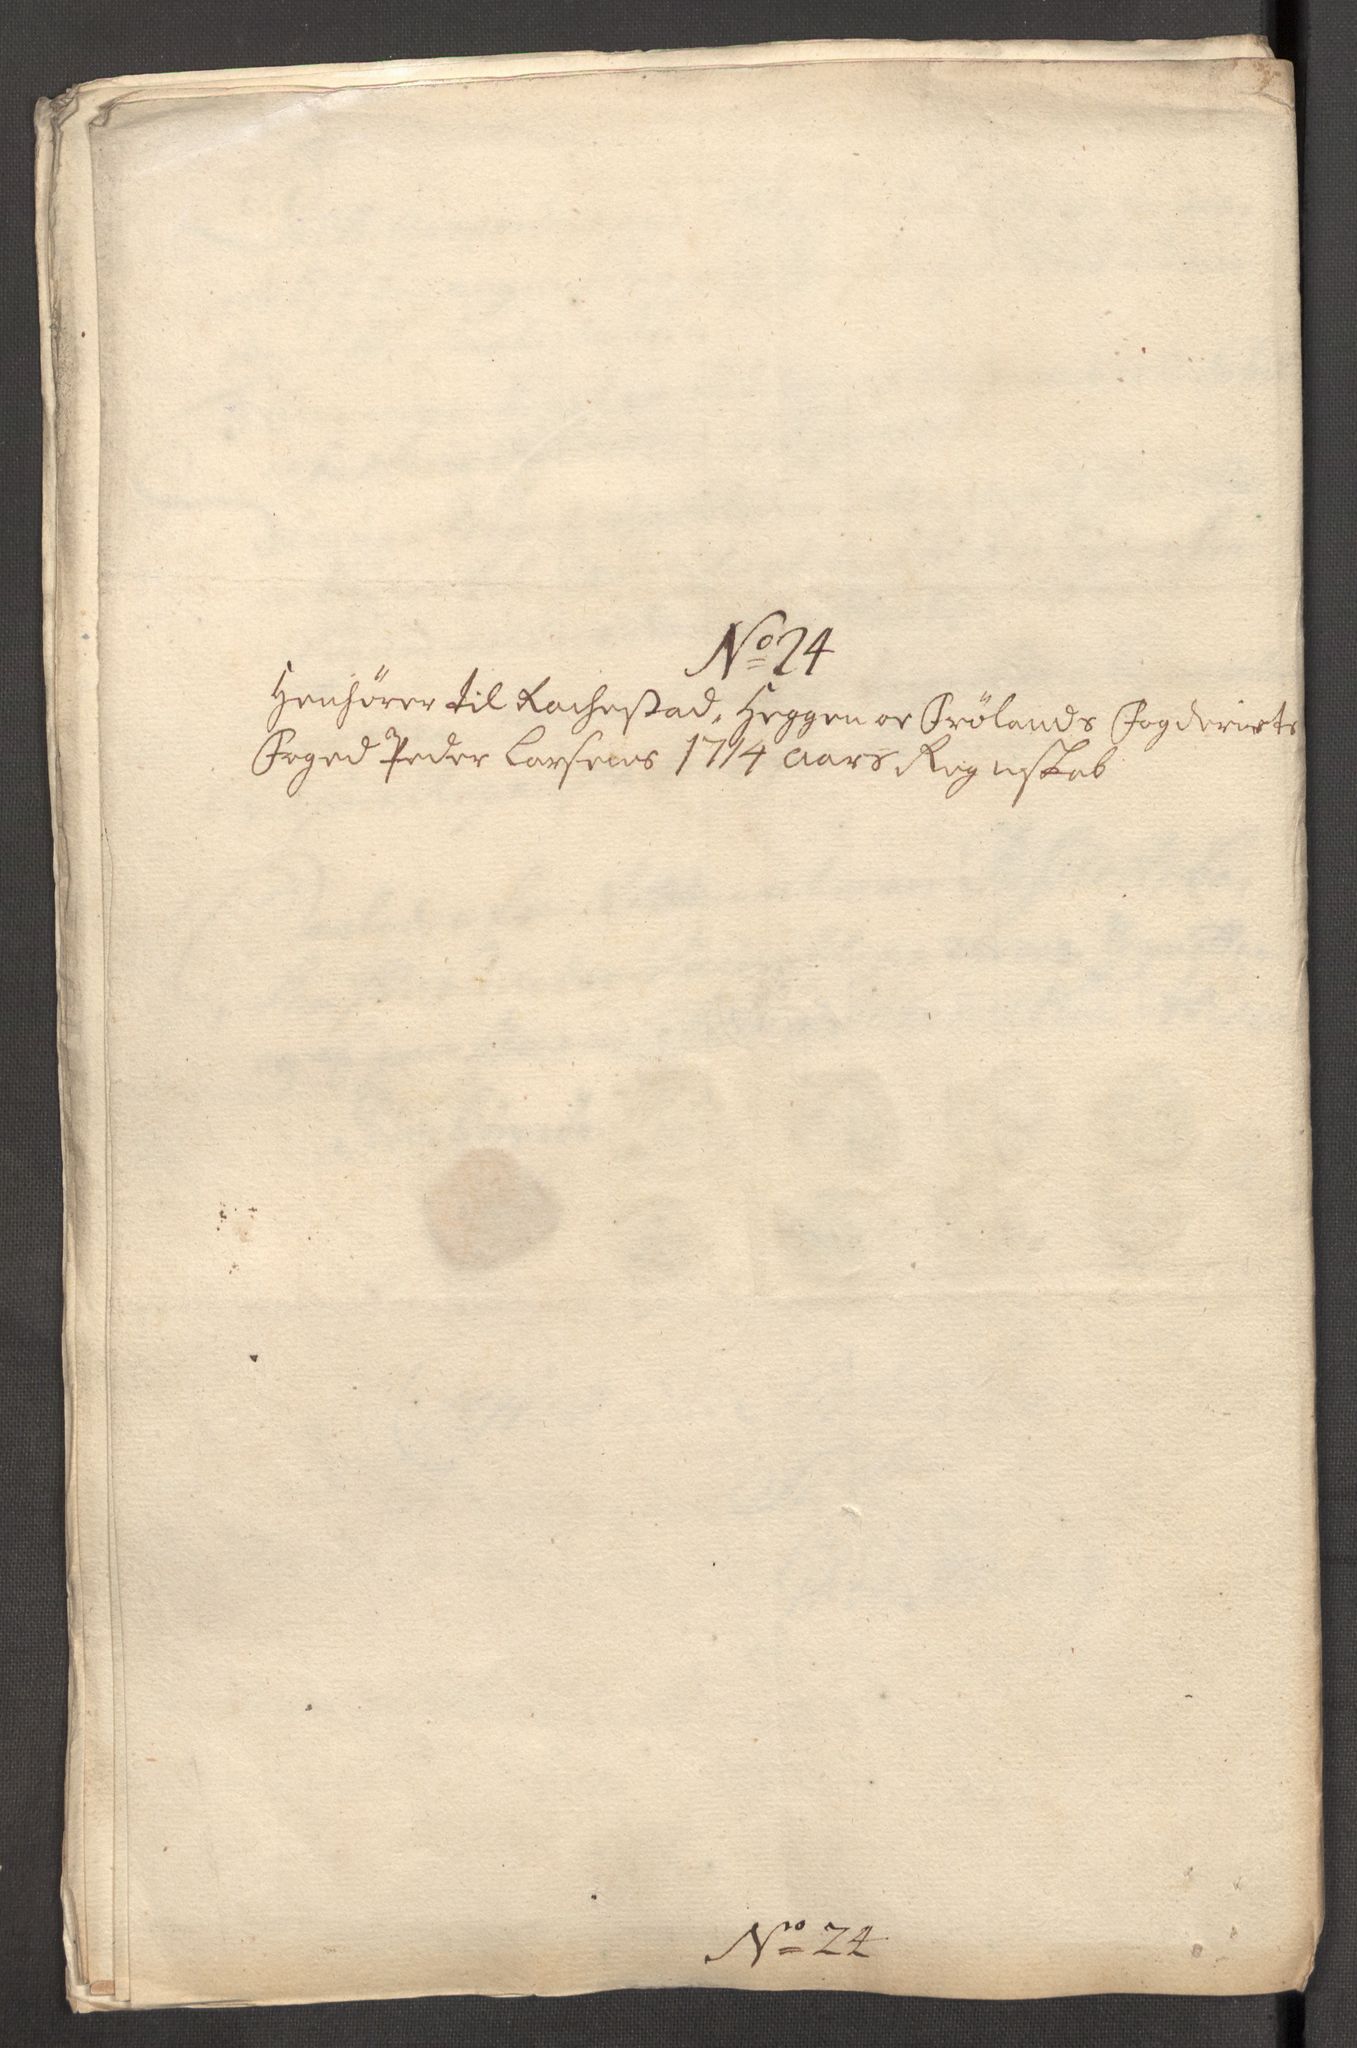 No 24
Henhörer til Rachestad, Heggen oc Frölands Fogderiets
Foged Peder Larsens 1714 aars Regnskab
No 24